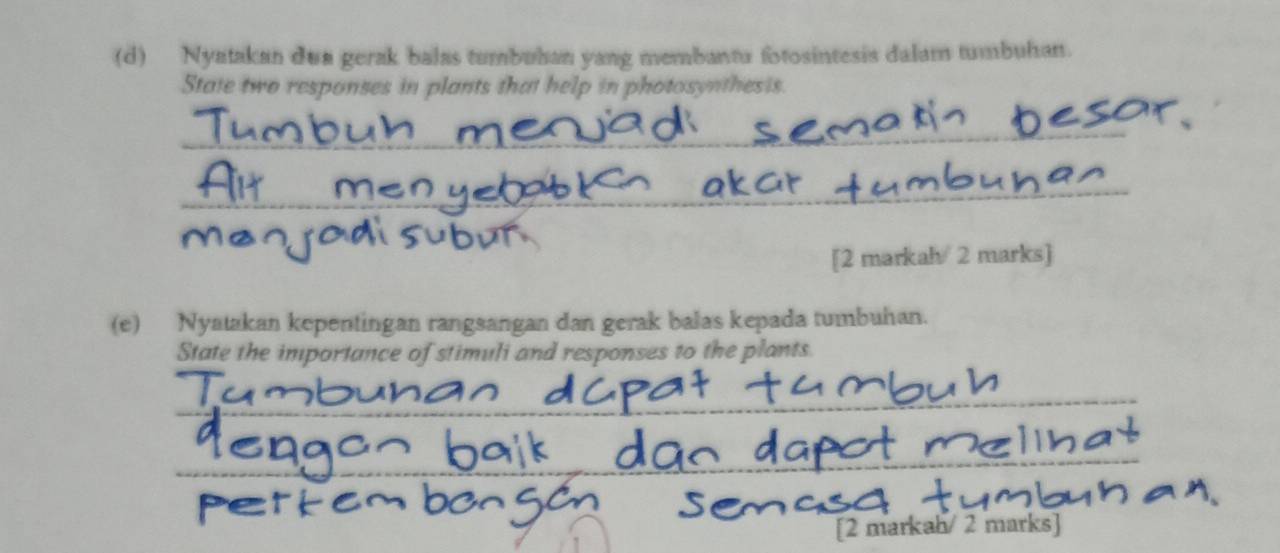 (d) Nyatakan dua gerak balas tumbuhan yang membantu fotosintesis dalam tumbuhan.
State two responses in plants that help in photosynthesis.
Tumbuh menjadi semakin besar.
Air menyebabkan akar tumbuhan
menjadi subur
[2 markah/ 2 marks]
(e) Nyatakan kepentingan rangsangan dan gerak balas kepada tumbuhan.
State the importance of stimuli and responses to the plants.
Tumbuhan dapat tumbuh
dengan baik dan dapat melihat
perkembangan semasa tumbuhan.
[2 markah/ 2 marks]